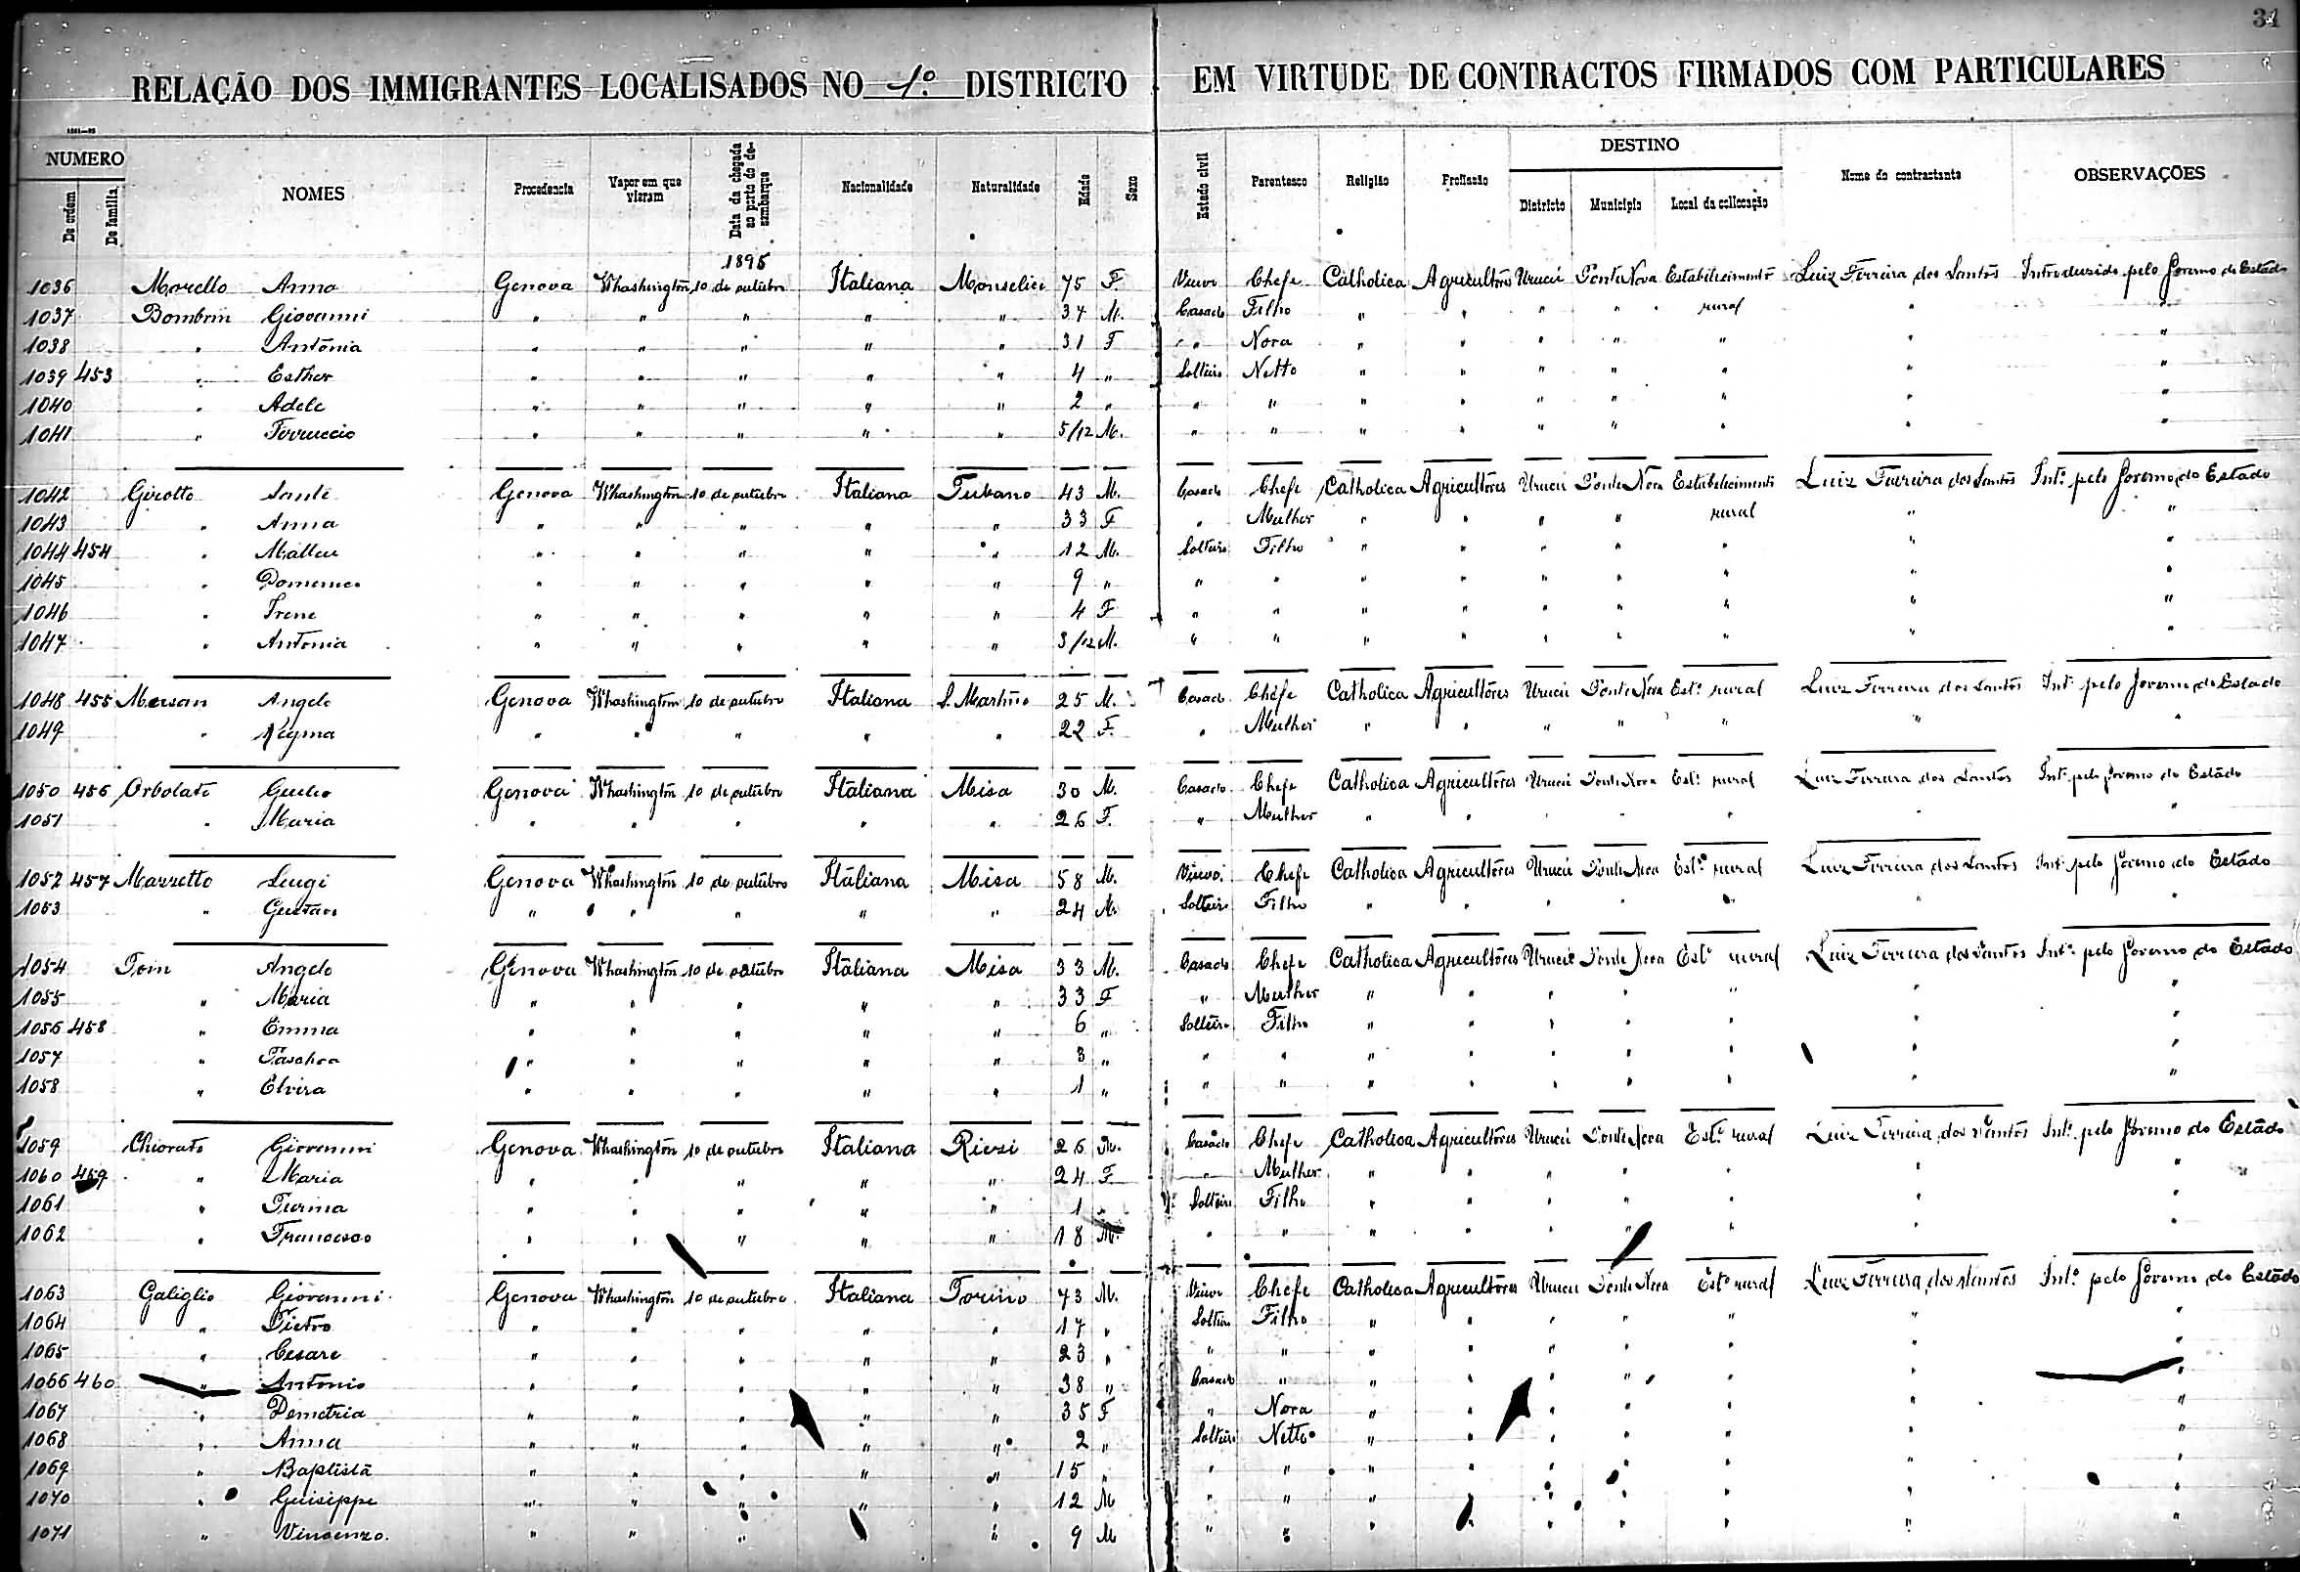 34
RELAÇÃO DOS IMMIGRANTES LOCALISADOS NO 1º DISTRICTO EM VIRTUDE DE CONTRACTOS FIRMADOS COM PARTICULARES
NUMERO De ordem De familia NOMES Procedencia Vapor em que vieram Data da chegada ao porto do desembarque Nacionalidade Naturalidade Edade Sexo Estado civil Parentesco Religião Profissão DESTINO Districto Municipio Local da collocação Nome do contractante OBSERVAÇÕES
1895
1036 Morello Anna Genova Whashington 10 de outubro Italiana Monselice 75 F Viuvo Chefe Catholica Agricultôres Urucú Ponte Nova Estabelecimento Luiz Ferreira dos Santos Introdusido pelo Governo do Estado
1037 Bombrin Giovanni " " " " " 34 M. Casado Filho " " " " rural " "
1038 " Antonia " " " " " 31 F " Nora " " " " " " "
1039 453 " Esther " " " " " 4 " Solteiro Netto " " " " " " "
1040 " Adele " " " " " 2 " " " " " " " " " "
1041 " Ferruccio " " " " " 5/12 M. " " " " " " " " "
1042 Girotto Sante Genova Whashington 10 de outubro Italiana Fubano 43 M. Casado Chefe Catholica Agricultôres Urucú Ponte Nova Estabelecimento Luiz Ferreira dos Santos Intº pelo Governo do Estado
1043 " Anna " " " " " 33 F " Mulher " " " " rural " "
1044 454 " Matteu " " " " " 12 M. Solteiro Filho " " " " " " "
1045 " Domenico " " " " " 9 " " " " " " " " " "
1046 " Irene " " " " " 4 F " " " " " " " " "
1047 " Antonia " " " " " 3/12 M. " " " " " " " " "
1048 455 Mersan Angelo Genova Whashington 10 de outubro Italiana S. Martino 25 M. Casado Chefe Catholica Agricultôres Urucú Ponte Nova Estº rural Luiz Ferreira dos Santos Intº pelo Governo do Estado
1049 " Regina " " " " " 22 F. " Mulher " " " " " " "
1050 456 Orbolato Guilio Genova Whashington 10 de outubro Italiana Misa 30 M. Casado Chefe Catholica Agricultôres Urucú Ponte Nova Estº rural Luiz Ferreira dos Santos Intº pelo Governo do Estado
1051 " Maria " " " " " 26 F. " Mulher " " " " " "
1052 457 Marretto Luigi Genova Whashington 10 de outubro Italiana Misa 58 M. Viuvo Chefe Catholica Agricultôres Urucú Ponte Nova Estº rural Luiz Ferreira dos Santos Intº pelo Governo do Estado
1053 " Gustavo " " " " " 24 M. Solteiro Filho " " " " " " "
1054 Toin Angelo Genova Whashington 10 de outubro Italiana Misa 33 M. Casado Chefe Catholica Agricultôres Urucú Ponte Nova Estº rural Luiz Ferreira dos Santos Intº pelo Governo do Estado
1055 " Maria " " " " " 33 F " Mulher " " " " " " "
1056 458 " Emma " " " " " 6 " Solteiro Filho " " " " " " "
1057 " Paschoa " " " " " 3 " " " " " " " " " "
1058 " Elvira " " " " " 1 " " " " " " " " " "
1059 Chiorato Giovanni Genova Whashington 10 de outubro Italiana Riesi 26 M. Casado Chefe Catholica Agricultôres Urucú Ponte Nova Estº rural Luiz Ferreira dos Santos Intº pelo Governo do Estado
1060 459 " Maria " " " " " 24 F " Mulher " " " " " " "
1061 " " " " " " 1 " Solteiro Filho " " " " " " "
1062 " Francesco " " " " " 18 M. " " " " " " " " "
1063 Galiglio Giovanni Genova Whashington 10 de outubro Italiana Torino 73 M. Viuvo Chefe Catholica Agricultôres Urucú Ponte Nova Estº rural Luiz Ferreira dos Santos Intº pelo Governo do Estado
1064 " Pietro " " " " " 17 " Solteiro Filho " " " " " " "
1065 " Cesare " " " " " 23 " " " " " " " " " "
1066 460 " Antonio " " " " " 38 " Casado " " " " " " " "
1067 " Demetria " " " " " 35 F " Nora " " " " " " "
1068 " Anna " " " " " 2 " Solteiro Netto " " " " " " "
1069 " Baptista " " " " " 15 " " " " " " " " " "
1070 " Guiseppe " " " " " 12 M " " " " " " " " "
1071 " Vincenzo. " " " " " 9 M " " " " " " " " "